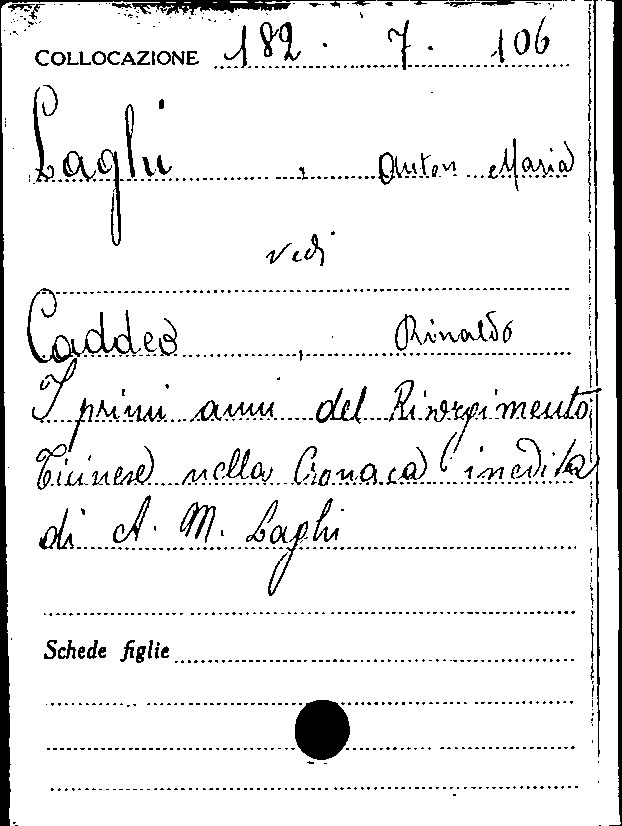 COLLOCAZIONE 182 . 7 . 106
Laghi , Anton Maria
vedi
Caddeo , Rinaldo
I primi anni del Risorgimento
Ticinese nella Cronaca inedita
di A. M. Laghi
Schede figlie